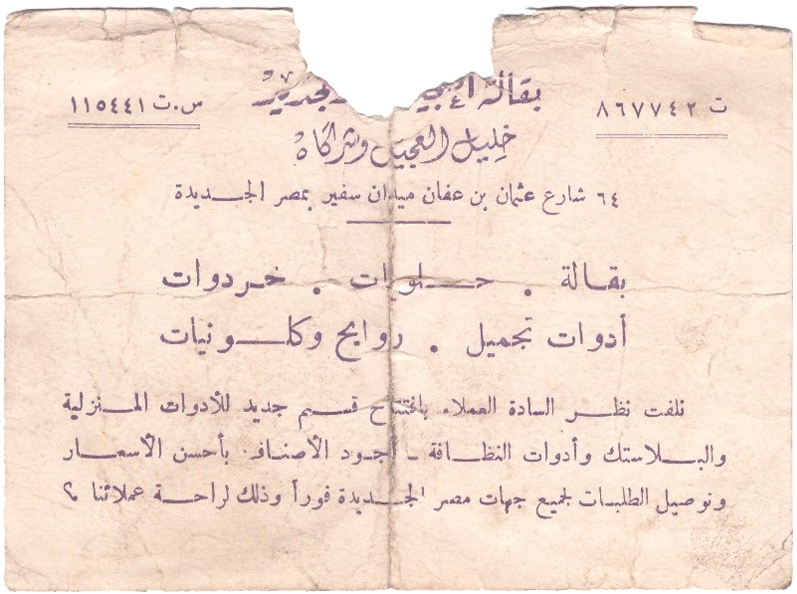 ت ٨٦٧٧٤٢
س.ت ١١٥٤٤١
بقالة
خليل العجيل وشركاه
٦٤ شارع عثمان بن عفان ميدان سفير بمصر الجديدة
بقالة . حلويات . خردوات
أدوات تجميل . روايح وكلونيات
نلفت نظر السادة العملاء بافتتاح قسم جديد للأدوات المنزلية
والبلاستك وأدوات النظافة ـ أجود الأصناف . بأحسن الأسعار
وتوصيل الطلبات لجميع جهات مصر الجديدة فوراً وذلك لراحة عملائنا